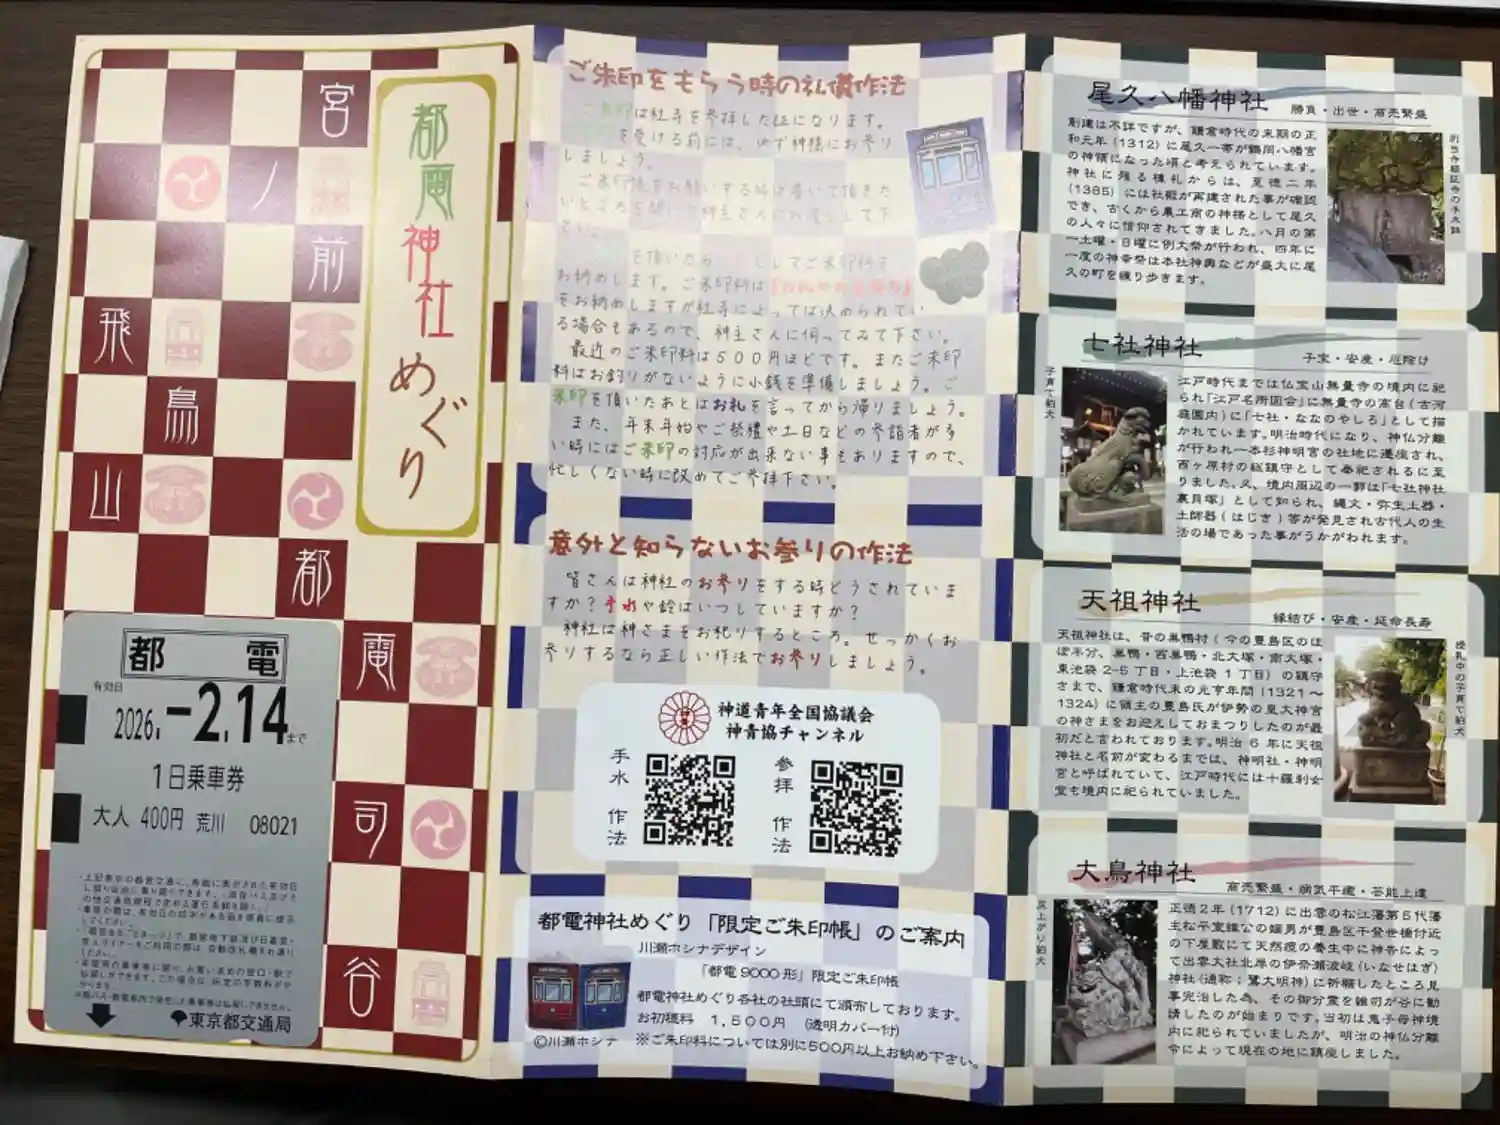 宮
ノ
前
飛
鳥
山
都
電
司
谷
都電神社めぐり
都 電
有効日
2026.-2.14まで
1日乗車券
大人 400円 荒川 08021
東京都交通局
ご朱印をもらう時の礼儀作法
は社寺を参拝した証になります。
を受ける前には、必ず神様にお参り
しましょう。
お納めします。ご朱印料は
をお納めしますが社寺によっては決められてい
る場合もあるので、神主さんに伺ってみて下さい。
最近のご朱印料は500円ほどです。またご朱印
料はお釣りがないように小銭を準備しましょう。ご
朱印を頂いたあとはお礼を言ってから帰りましょう。
また、年末年始やご祭禮や土日などの参詣者が多
い時にはご朱印の対応が出来ない事もありますので、
忙しくない時に改めてご参拝下さい。
意外と知らないお参りの作法
皆さんは神社のお参りをする時どうされていま
すか？手水や鈴はいつしていますか？
神社は神さまをお祀りするところ。せっかくお
参りするなら正しい作法でお参りしましょう。
神道青年全国協議会
神青協チャンネル
手水 作法
参拝 作法
都電神社めぐり「限定ご朱印帳」のご案内
川瀬ホシナデザイン
「都電9000形」限定ご朱印帳
都電神社めぐり各社の社頭にて頒布しております。
お初穂料 1,500円 (透明カバー付)
©川瀬ホシナ ※ご朱印料については別に500円以上お納め下さい。
尾久八幡神社
勝負・出世・商売繁盛
創建は不詳ですが、鎌倉時代の末期の正
和元年(1312)に尾久一帯が鶴岡八幡宮
の神領になった頃と考えられています。
神社に残る棟札からは、至徳二年
(1385)には社殿が再建された事が確認
でき、古くから農工商の神様として尾久
の人々に信仰されてきました。八月の第
一土曜・日曜に例大祭が行われ、四年に
一度の神幸祭は本社神輿などが盛大に尾
久の町を練り歩きます。
七社神社
子宝・安産・厄除け
子育て狛犬
江戸時代までは仏宝山無量寺の境内に祀
られ「江戸名所図会」に無量寺の高台(古河
庭園内)に「七社・ななのやしろ」として描
かれています。明治時代になり、神仏分離
が行われ一本杉神明宮の社地に遷座され、
西ヶ原村の総鎮守として奉祀されるに至
りました。又、境内周辺の一部は「七社神社
裏貝塚」として知られ、縄文・弥生土器・
土師器(はじき)等が発見され古代人の生
活の場であった事がうかがわれます。
天祖神社
縁結び・安産・延命長寿
天祖神社は、昔の巣鴨村(今の豊島区のほ
ぼ半分、巣鴨・西巣鴨・北大塚・南大塚・
東池袋2-5丁目・上池袋1丁目)の鎮守
さまで、鎌倉時代末の元亨年間(1321～
1324)に領主の豊島氏が伊勢の皇大神宮
の神さまをお迎えしておまつりしたのが最
初だと言われております。明治6年に天祖
神社と名前が変わるまでは、神明社・神明
宮と呼ばれていて、江戸時代には十羅刹女
堂も境内に祀られていました。
授乳中の子育て狛犬
大鳥神社
商売繁盛・病気平癒・芸能上達
正徳2年(1712)に出雲の松江藩第5代藩
主松平宣維なの嫡男が豊島区千登世橋付近
の下屋敷にて天然痘の養生中に神告によっ
て出雲大社北岸の伊奈瀬波岐(いなせはぎ)
神社(通称；鷺大明神)に祈願したところ見
事完治した為、その御分霊を雑司が谷に勧
請したのが始まりです。当初は鬼子母神境
内に祀られていましたが、明治の神仏分離
令によって現在の地に鎮座しました。